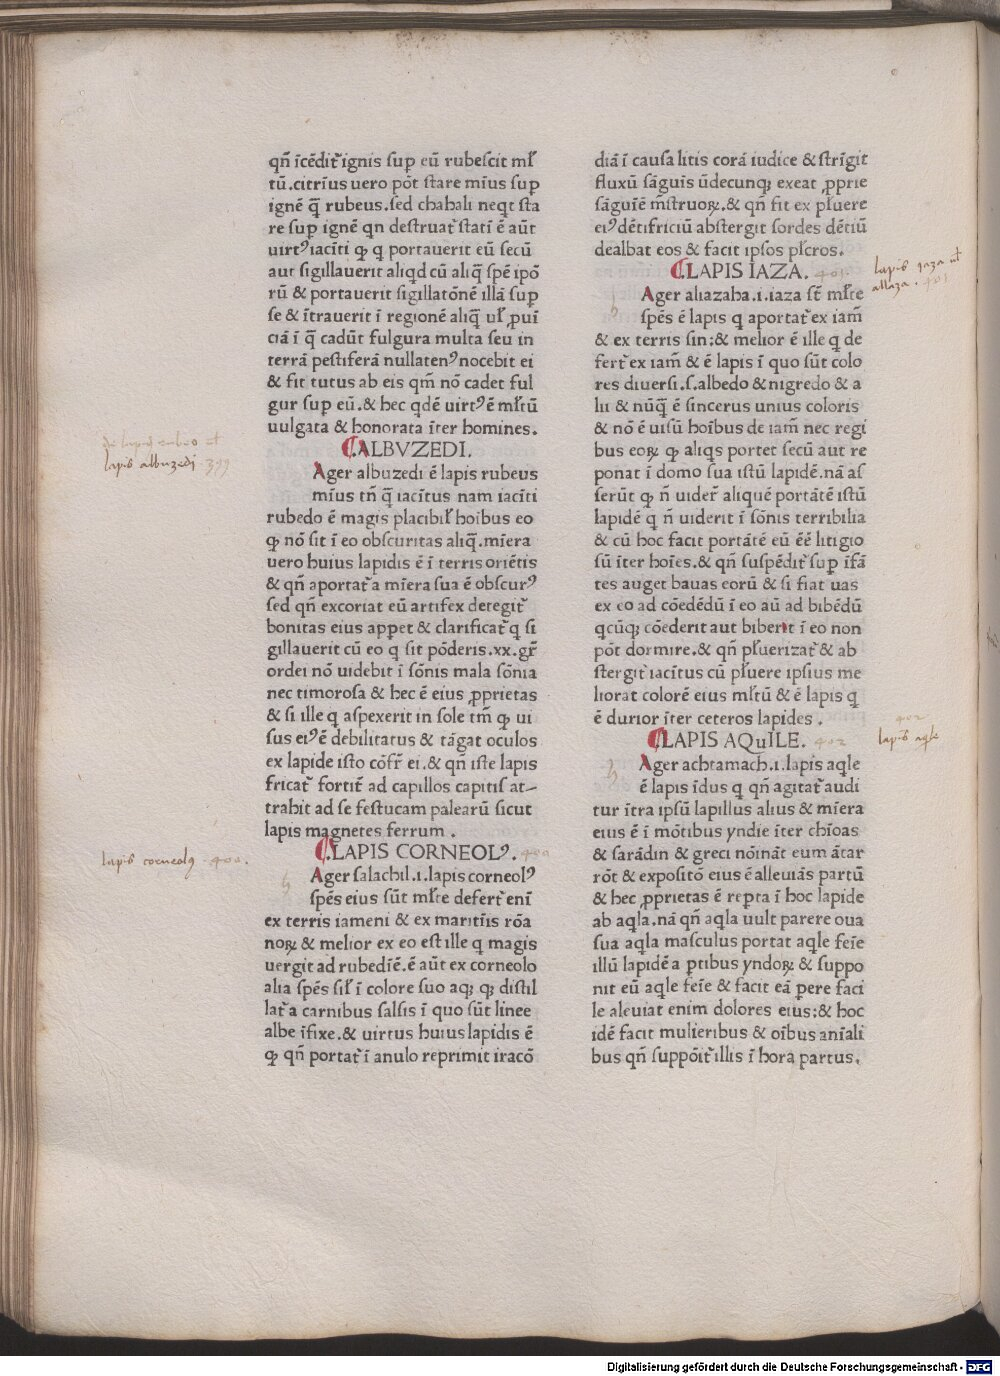 qñ ĩcēdit᷑ ignis suꝑ eū rubescit mƚ
tū.citrĩus uero pōt stare mĩus suꝑ
ignē q̃ rubeus.sed chabali neqt sta
re suꝑ ignē qn destruat᷑ statĩ ē aūt
uirtꝰ iacĩti ꝙ q portauerit eū secū
aut sigillauerit aliqd cū aliq̃ spē ipō
rū & portauerit sigillatōnē illā suꝑ
se & ĩtrauerit ĩ regionē aliq̃ uƚ ꝓuĩ
ciā ĩ q̃ cadūt fulgura multa seu in
terrā pestiferā nullatenꝰ nocebit ei
& fit tutus ab eis qm̄ nō cadet ful
gur suꝑ eū.& hec qdē uirtꝰ ē mƚtū
uulgata & honorata ĩter homines.
ALBVZEDI.
Ager albuzedi ē lapis rubeus
mĩus tñ q̃ iacĩtus nam iacĩti
rubedo ē magis placibiƚ hoĩbus eo
ꝙ nō sit ĩ eo obscuritas aliq̃.mĩera
uero huius lapidis ē ĩ terris oriētis
& qñ aportat᷑ a mĩera sua ē obscurꝰ
sed qñ excoriat eū artifex detegit᷑
bonitas eius apꝑet & clarificat᷑ q si
gillauerit cū eo q sit pōderis.xx.gr̃
ordei nō uidebit ĩ sōnis mala sōnia
nec timorosa & hec ē eius ꝓprietas
& si ille q aspexerit in sole tm̄ ꝙ ui
sus eiꝰ ē debilitatus & tāgat oculos
ex lapide isto cōfr̃ ei.& qñ iste lapis
fricat᷑ fortit̃ ad capillos capitis at-
trahit ad se festucam palearū sicut
lapis magnetes ferrum.
LAPIS CORNEOLꝰ. 400
Ager salachil.i.lapis corneolꝰ
spēs eius sūt mƚte defert᷑ enĩ
ex terris iameni & ex maritĩis rōa
noꝝ & melior ex eo est ille q magis
uergit ad rubedĩē.ē aūt ex corneolo
alia spēs siƚ ĩ colore suo aqꝫ qꝫ distil
lat᷑ a carnibus salsis ĩ quo sūt linee
albe ĩfixe.& uirtus huius lapidis ē
ꝙ qñ portat᷑ ĩ anulo reprimit iracō
diā ĩ causa litis corā iudice & strĩgit
fluxū sāguĩs ūdecunqꝫ exeat ꝓprie
sāguĩē m̃struoꝝ.& qñ fit ex pƚuere
eiꝰ dētifriciū abstergit sordes dētiū
dealbat eos & facit ipsos pƚcros.
LAPIS IAZA. 401
Ager aliazaha.i.iaza st̃ mƚte
spēs ē lapis q aportat᷑ ex iam̃
& ex terris sin:& melior ē ille q de
fert᷑ ex iam̃ & ē lapis ĩ quo sūt colo
res diuersi.s.albedo & nigredo & a
lii & nūq̃ ē sincerus unius coloris
& nō ē uisū hoĩbus de iam̃ nec regi
bus eoꝝ ꝙ aliqs portet secū aut re
ponat ĩ domo sua istū lapidē.nā as
serūt ꝙ ñ uider̃ aliquē portātē istū
lapidē q ñ uiderit ĩ sōnis terribilia
& cū hoc facit portātē eū ēē litigio
sū ĩter hoĩes.& qñ suspēdit᷑ suꝑ ĩfā
tes auget bauas eorū & si fiat uas
ex eo ad cōedēdū ĩ eo aū ad bibēdū
qcūqꝫ cōederit aut biberit ĩ eo non
pōt dormire.& qñ pƚuerizat᷑ & ab
stergit᷑ iacĩtus cū pƚuere ipsius me
liorat colorē eius mƚtū & ē lapis q
ē durior ĩter ceteros lapides.
LAPIS AQuILE. 402
Ager achtamach.i.lapis aqle
ē lapis ĩdus q qñ agitat᷑ audi
tur ĩtra ipsū lapillus alius & mĩera
eius ē ĩ mōtibus yndie ĩter chĩoas
& sarādin & greci nōināt eum ātar
rōt & expositō eius ē alleuiās partū
& hec ꝓprietas ē reꝑta ĩ hoc lapide
ab aqla.nā qñ aqla uult parere oua
sua aqla masculus portat aqle feĩe
illū lapidē a ꝑtibus yndoꝝ & suppo
nit eū aqle feĩe & facit eā ꝑere faci
le aleuiat enim dolores eius:& hoc
idē facit mulieribus & oĩbus anĩali
bus qñ suppōit᷑ illis ĩ hora partus.
lapis albuzedi 399
lapis corneolꝰ 400.
lapis iaza uƚ
allaza. 401
402
lapis aqle
Digitalisierung gefördert durch die Deutsche Forschungsgemeinschaft - DFG